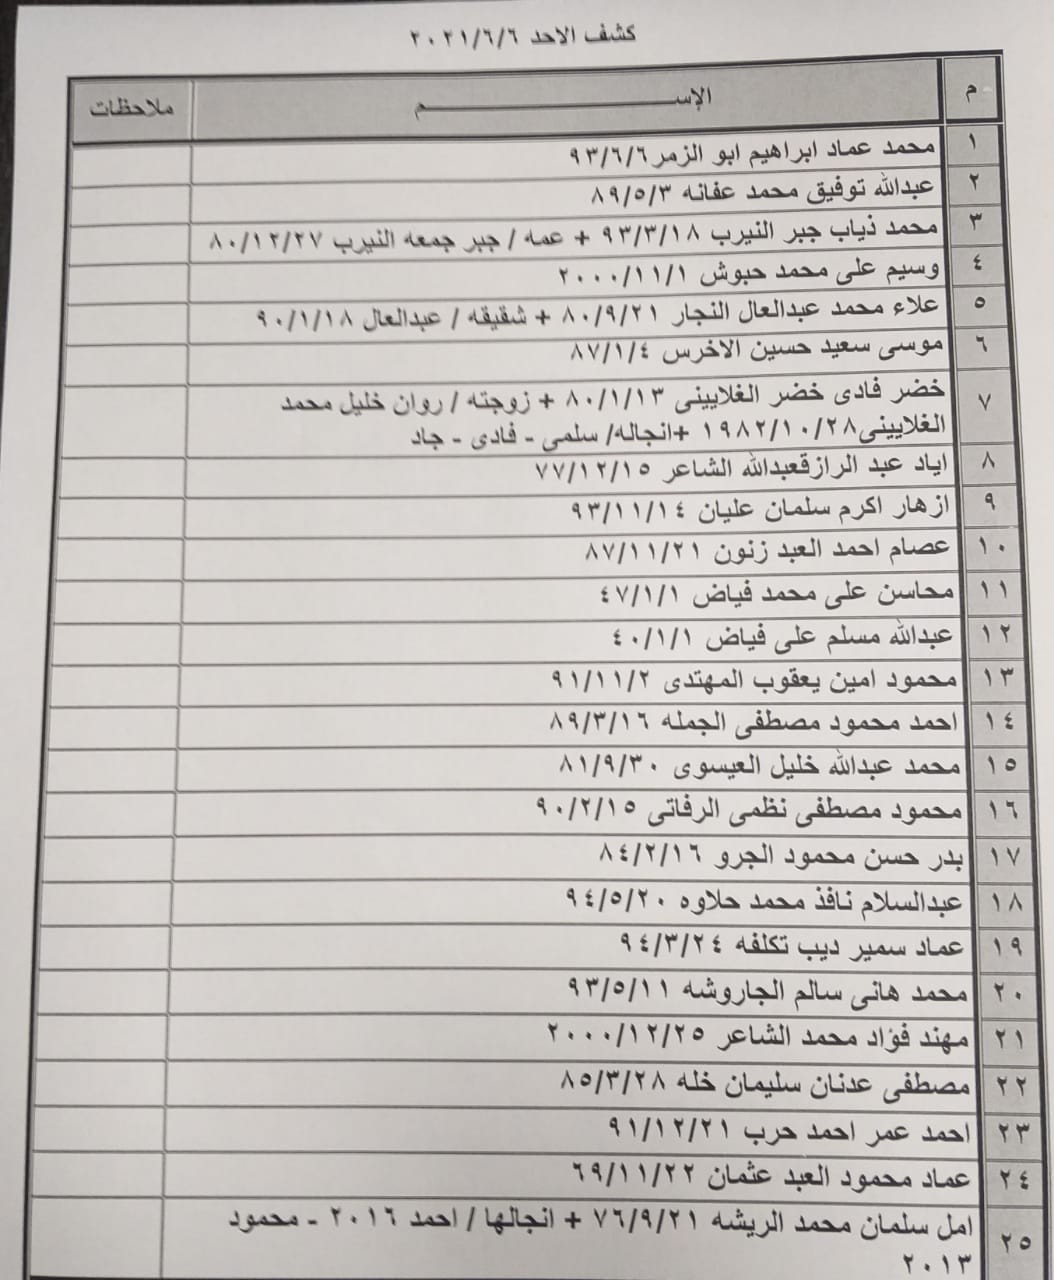 كشف الاحد ٢٠٢١/٦/٦
م الإســـــــــــم ملاحظات
١ محمد عماد ابراهيم ابو الزمر ٩٣/٦/٦
٢ عبدالله توفيق محمد عفانه ٨٩/٥/٣
٣ محمد ذياب جبر النيرب ٩٣/٣/١٨ + عمه / جبر جمعه النيرب ٨٠/١٢/٢٧
٤ وسيم على محمد حبوش ٢٠٠٠/١١/١
٥ علاء محمد عبدالعال النجار ٨٠/٩/٢١ + شقيقه / عبدالعال ٩٠/١/١٨
٦ موسى سعيد حسين الاخرس ٨٧/١/٤
٧ خضر فادى خضر الغلايينى ٨٠/١/١٣ + زوجته / روان خليل محمد
الغلايينى١٩٨٢/١٠/٢٨ +انجاله/ سلمى - فادى - جاد
٨ اياد عبد الرازقعبدالله الشاعر ٧٧/١٢/١٥
٩ ازهار اكرم سلمان عليان ٩٣/١١/١٤
١٠ عصام احمد العبد زنون ٨٧/١١/٢١
١١ محاسن على محمد فياض ٤٧/١/١
١٢ عبدالله مسلم على فياض ٤٠/١/١
١٣ محمود امين يعقوب المهتدى ٩١/١١/٢
١٤ احمد محمود مصطفى الجمله ٨٩/٣/١٦
١٥ محمد عبدالله خليل العيسوى ٨١/٩/٣٠
١٦ محمود مصطفى نظمى الرفاتى ٩٠/٢/١٥
١٧ بدر حسن محمود الجرو ٨٤/٢/١٦
١٨ عبدالسلام نافذ محمد حلاوه ٩٤/٥/٢٠
١٩ عماد سمير ديب تكلفه ٩٤/٣/٢٤
٢٠ محمد هانى سالم الجاروشه ٩٣/٥/١١
٢١ مهند فؤاد محمد الشاعر ٢٠٠٠/١٢/٢٥
٢٢ مصطفى عدنان سليمان خله ٨٥/٣/٢٨
٢٣ احمد عمر احمد حرب ٩١/١٢/٢١
٢٤ عماد محمود العبد عثمان ٦٩/١١/٢٢
٢٥ امل سلمان محمد الريشه ٧٦/٩/٢١ + انجالها / احمد ٢٠١٦ - محمود
٢٠١٣